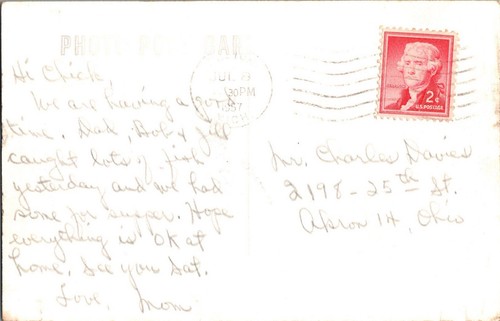 PHOTO POST CARD
Hi Chick,
We are having a good
time. Dad, Bob & Jill
caught lots of fish
yesterday and we had
some for supper. Hope
everything is OK at
home. See you Sat.
Love, Mom
JUL
30PM
2¢
U.S. POSTAGE
Mr. Charles Davies
2198-25th St.
Akron 14, Ohio